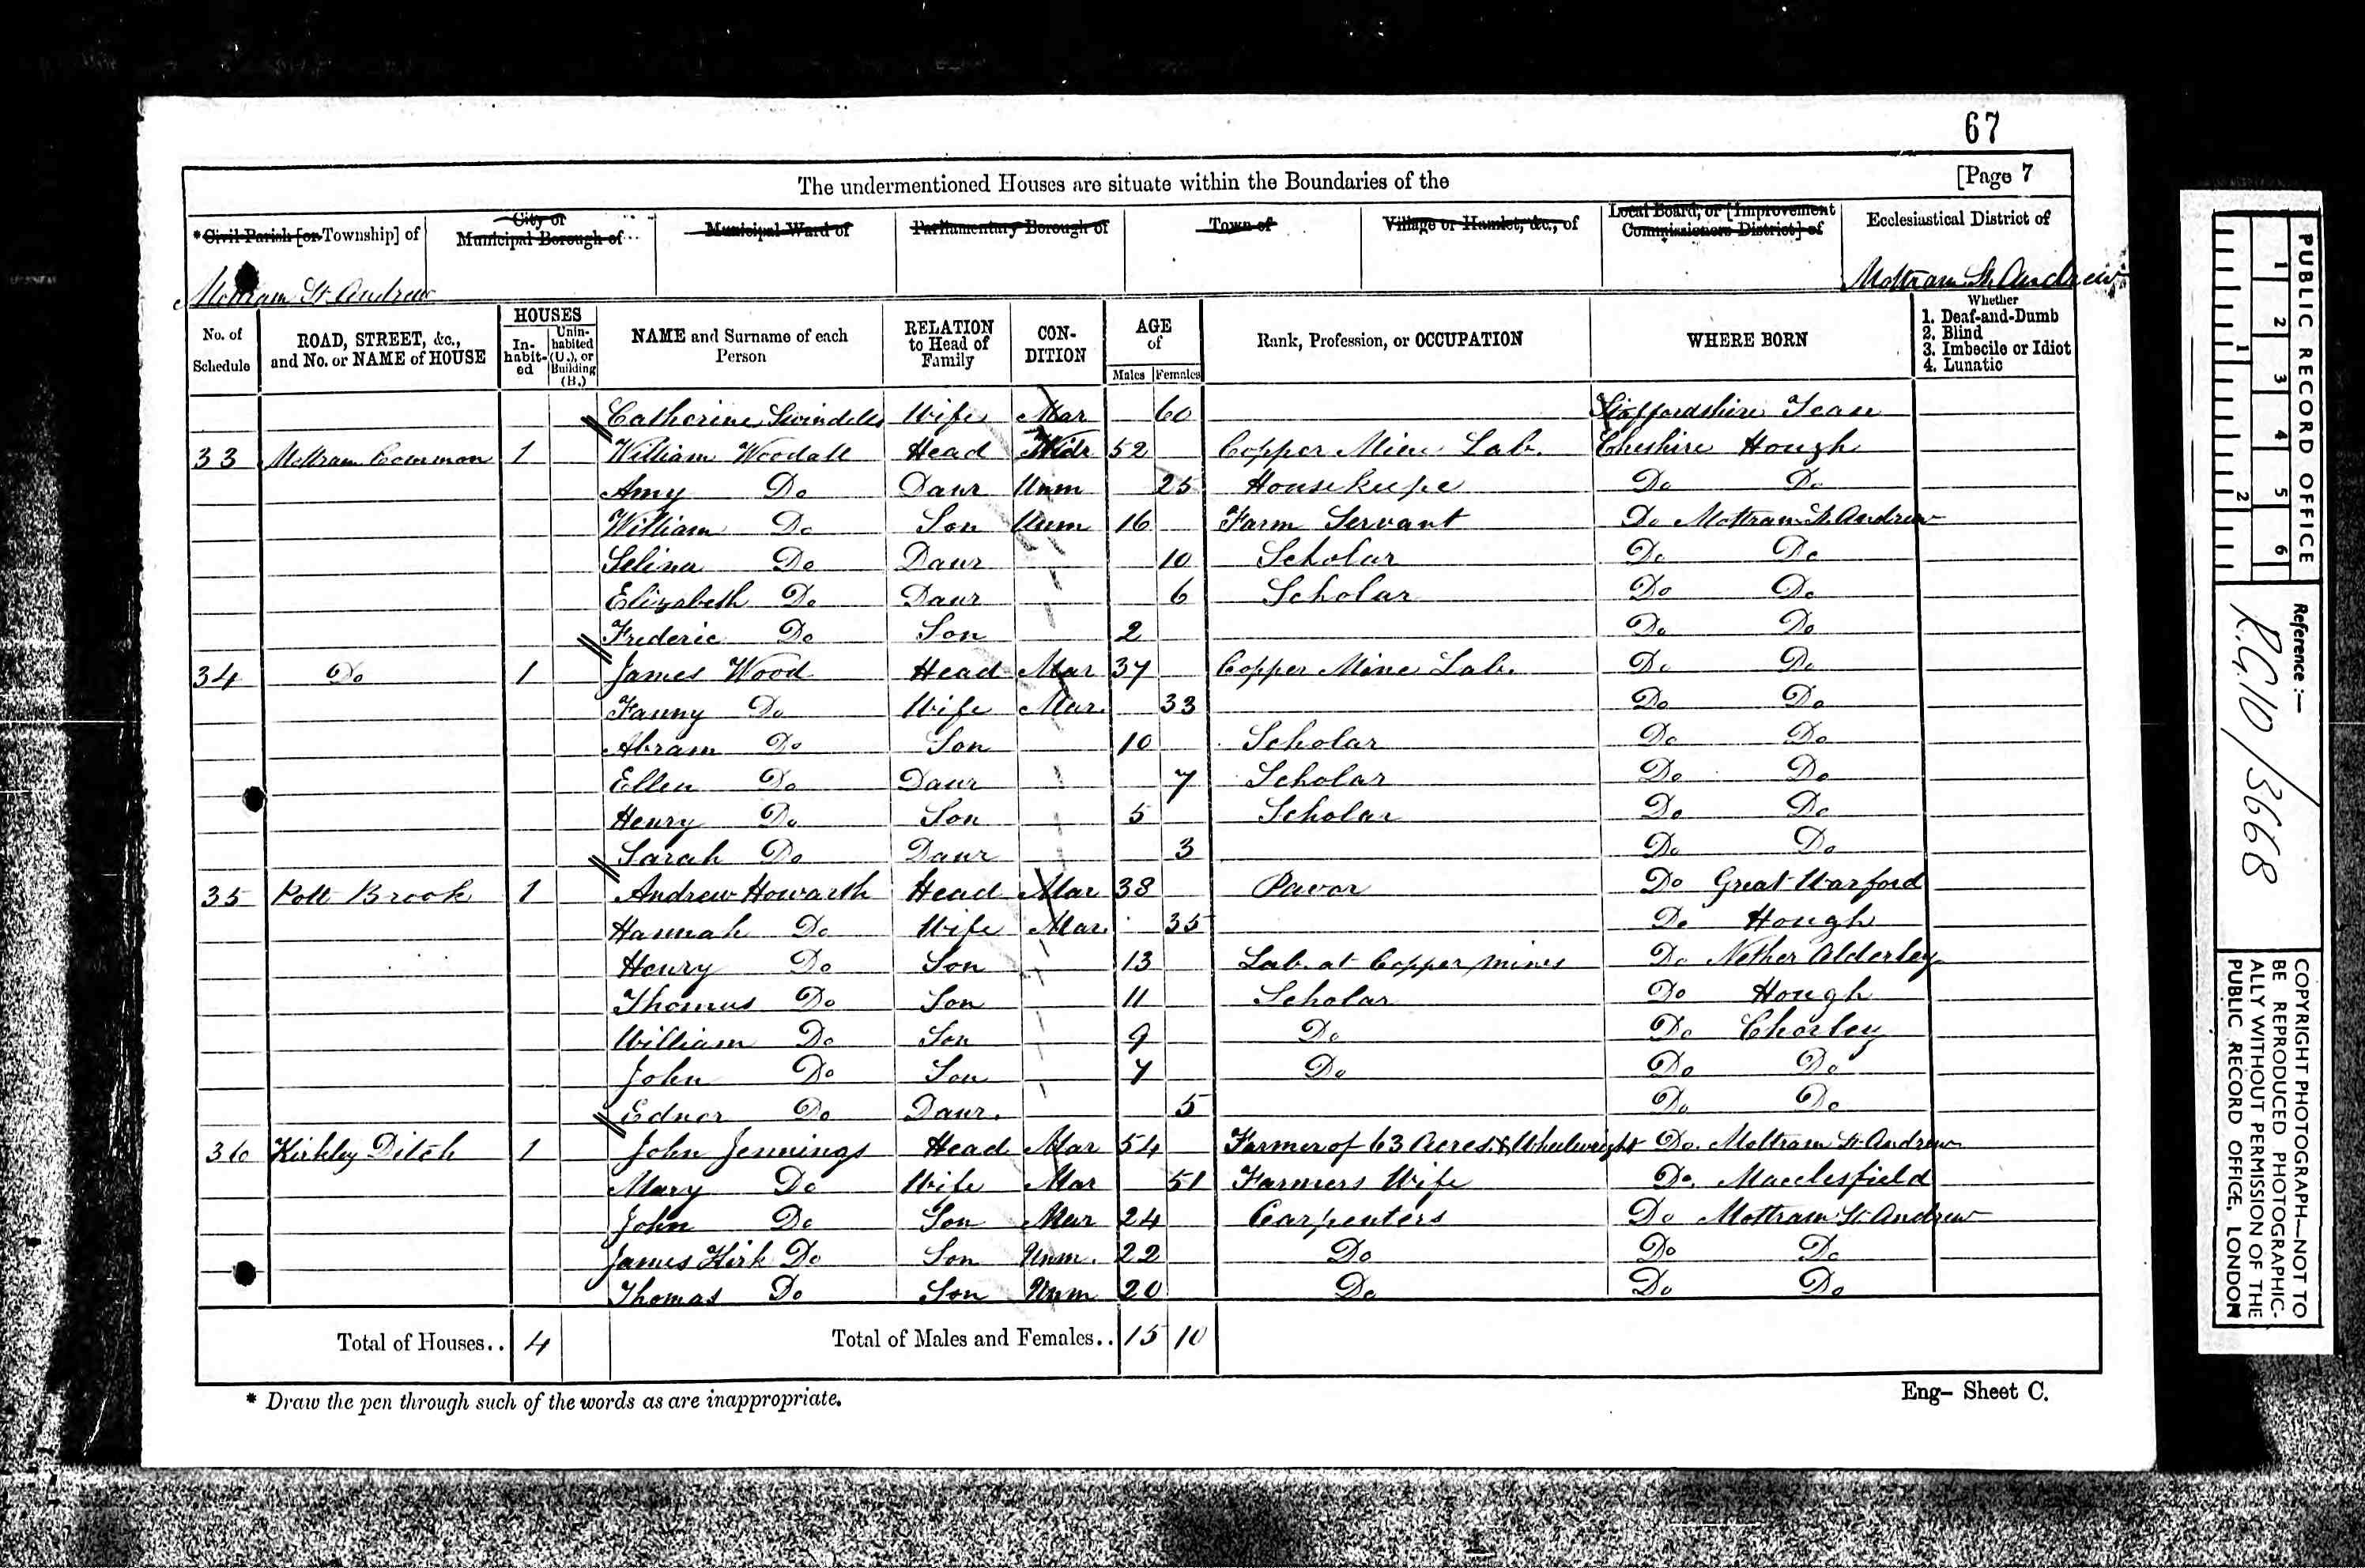 67
[Page 7
The undermentioned Houses are situate within the Boundaries of the
*Civil Parish [or Township] of | City or Municipal Borough of | Municipal Ward of | Parliamentary Borough of | Town of | Village or Hamlet, &c., of | Local Board, or [Improvement Commissioners District] of | Ecclesiastical District of
Mottram St. Andrew | Mottram St. Andrew
No. of Schedule | ROAD, STREET, &c., and No. or NAME of HOUSE | HOUSES In-habit-ed | Unin-habited (U.), or Building (B.) | NAME and Surname of each Person | RELATION to Head of Family | CON-DITION | AGE of Males | Females | Rank, Profession, or OCCUPATION | WHERE BORN | Whether 1. Deaf-and-Dumb 2. Blind 3. Imbecile or Idiot 4. Lunatic
Catherine Swindells Wife Mar 60 Staffordshire Tean
33 Mottram Common 1 William Woodall Head Widr 52 Copper Mine Lab. Cheshire Hough
Amy Do Daur Unm 25 Housekeepe Do Do
William Do Son Unm 16 Farm Servant Do Mottram St. Andrew
Selina Do Daur 10 Scholar Do Do
Elizabeth Do Daur 6 Scholar Do Do
Frederic Do Son 2 Do Do
34 Do 1 James Wood Head Mar 37 Copper Mine Lab. Do Do
Fanny Do Wife Mar. 33 Do Do
Abram Do Son 10 Scholar Do Do
Ellen Do Daur 7 Scholar Do Do
Henry Do Son 5 Scholar Do Do
Sarah Do Daur 3 Do Do
35 Pott Brook 1 Andrew Howarth Head Mar 38 Pavor Do Great Warford
Hannah Do Wife Mar. 35 Do Hough
Henry Do Son 13 Lab. at Copper mines Do Nether Alderley
Thomas Do Son 11 Scholar Do Hough
William Do Son 9 Do Do Chorley
John Do Son 7 Do Do Do
Ednor Do Daur. 5 Do Do
36 Kirkley Ditch 1 John Jennings Head Mar 54 Farmer of 63 Acres & Wheelwright Do. Mottram St. Andrew
Mary Do Wife Mar 51 Farmers Wife Do. Macclesfield
John Do Son Mar 24 Carpenters Do Mottram St. Andrew
James Kirk Do Son Unm. 22 Do Do Do
Thomas Do Son Unm 20 Do Do Do
Total of Houses.. 4 Total of Males and Females.. 15 10
* Draw the pen through such of the words as are inappropriate.
Eng- Sheet C.
PUBLIC RECORD OFFICE
1 2 3 4 5 6
1 2
Reference :-
R.G.10/3668
COPYRIGHT PHOTOGRAPH—NOT TO
BE REPRODUCED PHOTOGRAPHIC-
ALLY WITHOUT PERMISSION OF THE
PUBLIC RECORD OFFICE, LONDON